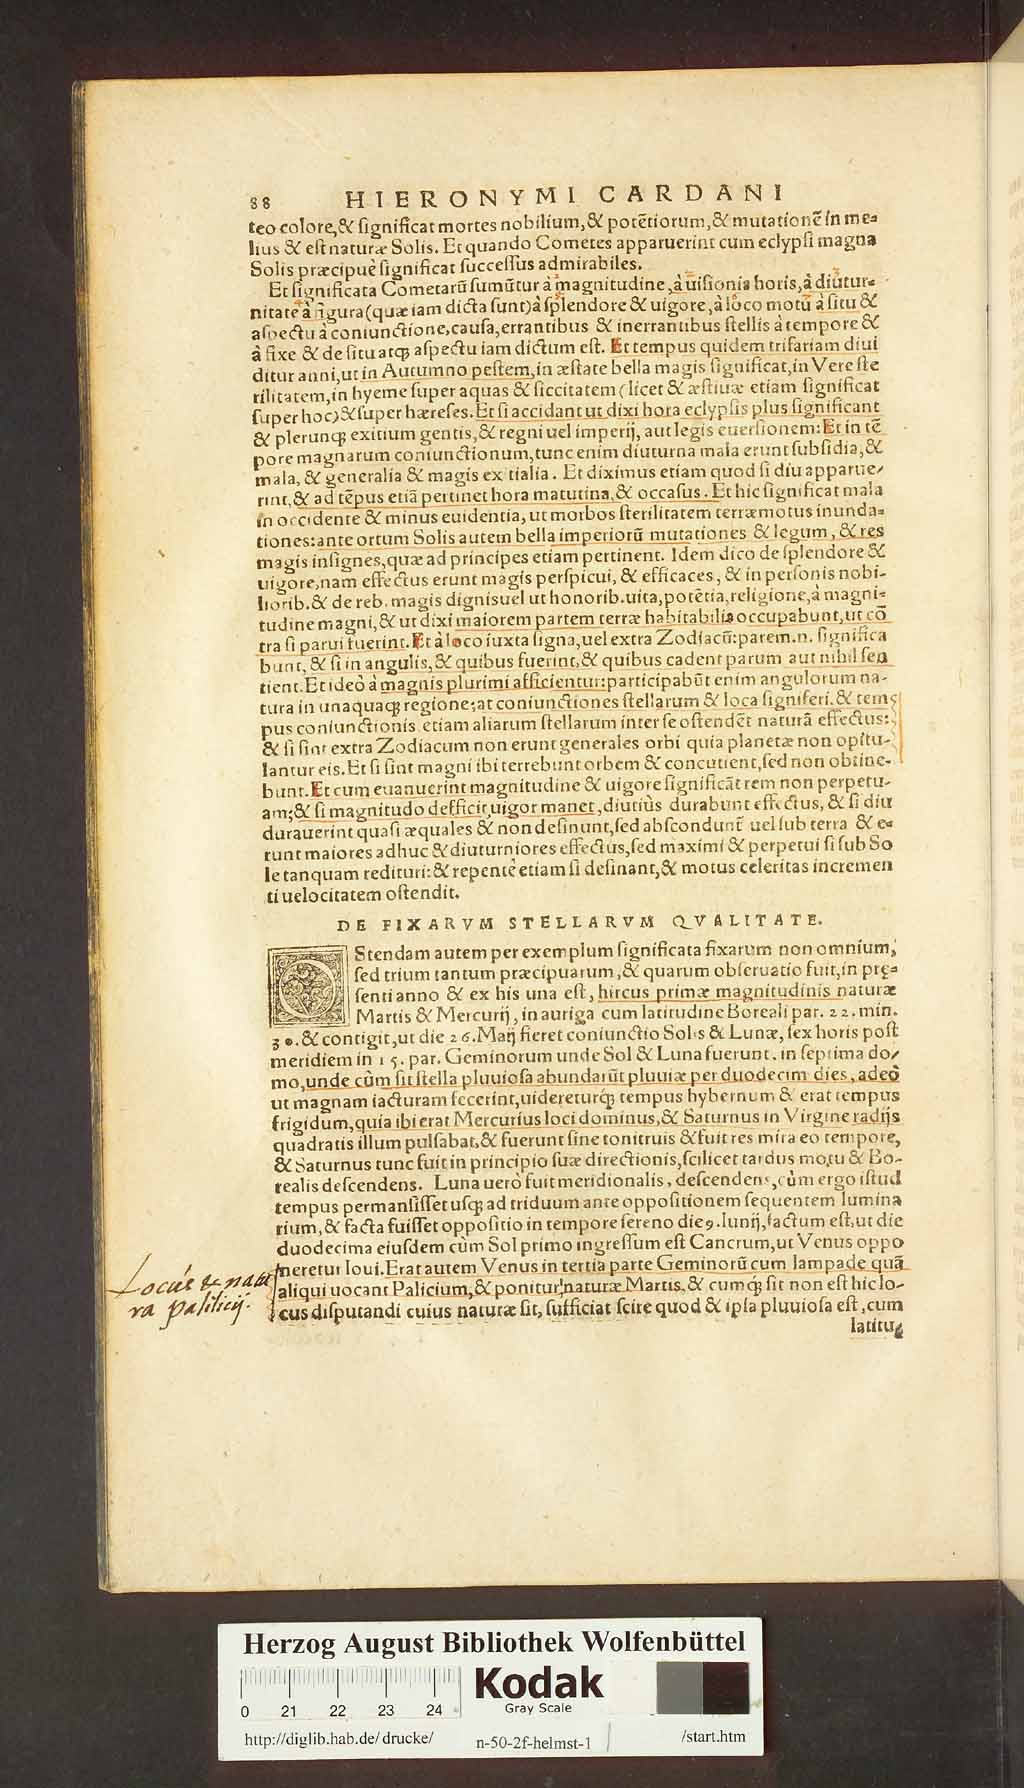 88 HIERONYMI CARDANI
teo colore, & significat mortes nobilium, & potētiorum, & mutationē in me-
lius & est naturæ Solis. Et quando Cometes apparuerint cum eclypsi magna
Solis præcipuè significat successus admirabiles.
Et significata Cometarū sumūtur à magnitudine, à uisionis horis, à diutur-
nitate à figura (quæ iam dicta sunt) à splendore & uigore, à loco motū à situ &
aspectu à coniunctione, causa, errantibus & inerrantibus stellis à tempore &
à fixe & de situ atq; aspectu iam dictum est. Et tempus quidem trifariam diui
ditur anni, ut in Autumno pestem, in æstate bella magis significat, in Vere ste
rilitatem, in hyeme super aquas & siccitatem (licet & æstiuæ etiam significat
super hoc) & super hæreses. Et si accidant ut dixi hora eclypsis plus significant
& plerunq; exitium gentis, & regni uel imperij, aut legis euersionem: Et in tē
pore magnarum coniunctionum, tunc enim diuturna mala erunt subsidia, &
mala, & generalia & magis exitialia. Et diximus etiam quod si diu apparue-
rint, & ad tēpus etiā pertinet hora matutina, & occasus. Et hic significat mala
in occidente & minus euidentia, ut morbos sterilitatem terræmotus inunda-
tiones: ante ortum Solis autem bella imperiorū mutationes & legum, & res
magis insignes, quæ ad principes etiam pertinent. Idem dico de splendore &
uigore, nam effectus erunt magis perspicui, & efficaces, & in personis nobi-
liorib. & de reb. magis dignis uel ut honorib. uita, potētia, religione, à magni-
tudine magni, & ut dixi maiorem partem terræ habitabilis occupabunt, ut cō
tra si parui fuerint. Et à loco iuxta signa, uel extra Zodiacū: parem .n. significa
bunt, & si in angulis, & quibus fuerint, & quibus cadent parum aut nihil sen
tient. Et ideò à magnis plurimi afficientur: participabūt enim angulorum na-
tura in unaquaq; regione: at coniunctiones stellarum & loca signiferi. & tem
pus coniunctionis etiam aliarum stellarum inter se ostendēt naturā effectus:
& si sint extra Zodiacum non erunt generales orbi quia planetæ non opitu-
lantur eis. Et si sint magni ibi terrebunt orbem & concutient, sed non obtine-
bunt. Et cum euanuerint magnitudine & uigore significāt rem non perpetu-
am; & si magnitudo defficit, uigor manet, diutiùs durabunt effectus, & si diu
durauerint quasi æquales & non desinunt, sed abscondunt̄ uel sub terra & e-
runt maiores adhuc & diuturniores effectus, sed maximi & perpetui si sub So
le tanquam redituri: & repentè etiam si desinant, & motus celeritas incremen
ti uelocitatem ostendit.
DE FIXARVM STELLARVM QVALITATE.
OStendam autem per exemplum significata fixarum non omnium,
sed trium tantum præcipuarum, & quarum obseruatio fuit, in præ-
senti anno & ex his una est, hircus primæ magnitudinis naturæ
Martis & Mercurij, in auriga cum latitudine Boreali par. 22. min.
30. & contigit, ut die 26. Maij fieret coniunctio Solis & Lunæ, sex horis post
meridiem in 15. par. Geminorum unde Sol & Luna fuerunt. in septima do-
mo, unde cùm sit stella pluuiosa abundarūt pluuiæ per duodecim dies, adeò
ut magnam iacturam fecerint, uidereturq; tempus hybernum & erat tempus
frigidum, quia ibi erat Mercurius loci dominus, & Saturnus in Virgine radijs
quadratis illum pulsabat, & fuerunt sine tonitruis & fuit res mira eo tempore,
& Saturnus tunc fuit in principio suæ directionis, scilicet tardus motu & Bo-
realis descendens. Luna uerò fuit meridionalis, descendens, cùm ergo istud
tempus permansisset usq; ad triduum ante oppositionem sequentem lumina
rium, & facta fuisset oppositio in tempore sereno die 9. Iunij, factum est, ut die
duodecima eiusdem cùm Sol primo ingressum est Cancrum, ut Venus oppo
neretur Ioui. Erat autem Venus in tertia parte Geminorū cum lampade quā
aliqui uocant Palicium, & ponitur naturæ Martis, & cumq; sit non est hic lo-
cus disputandi cuius naturæ sit, sufficiat scire quod & ipsa pluuiosa est, cum
latitu-
Locus & natu
ra palilicij.
Herzog August Bibliothek Wolfenbüttel
0 21 22 23 24
Kodak
Gray Scale
http://diglib.hab.de/drucke/ n-50-2f-helmst-1 /start.htm